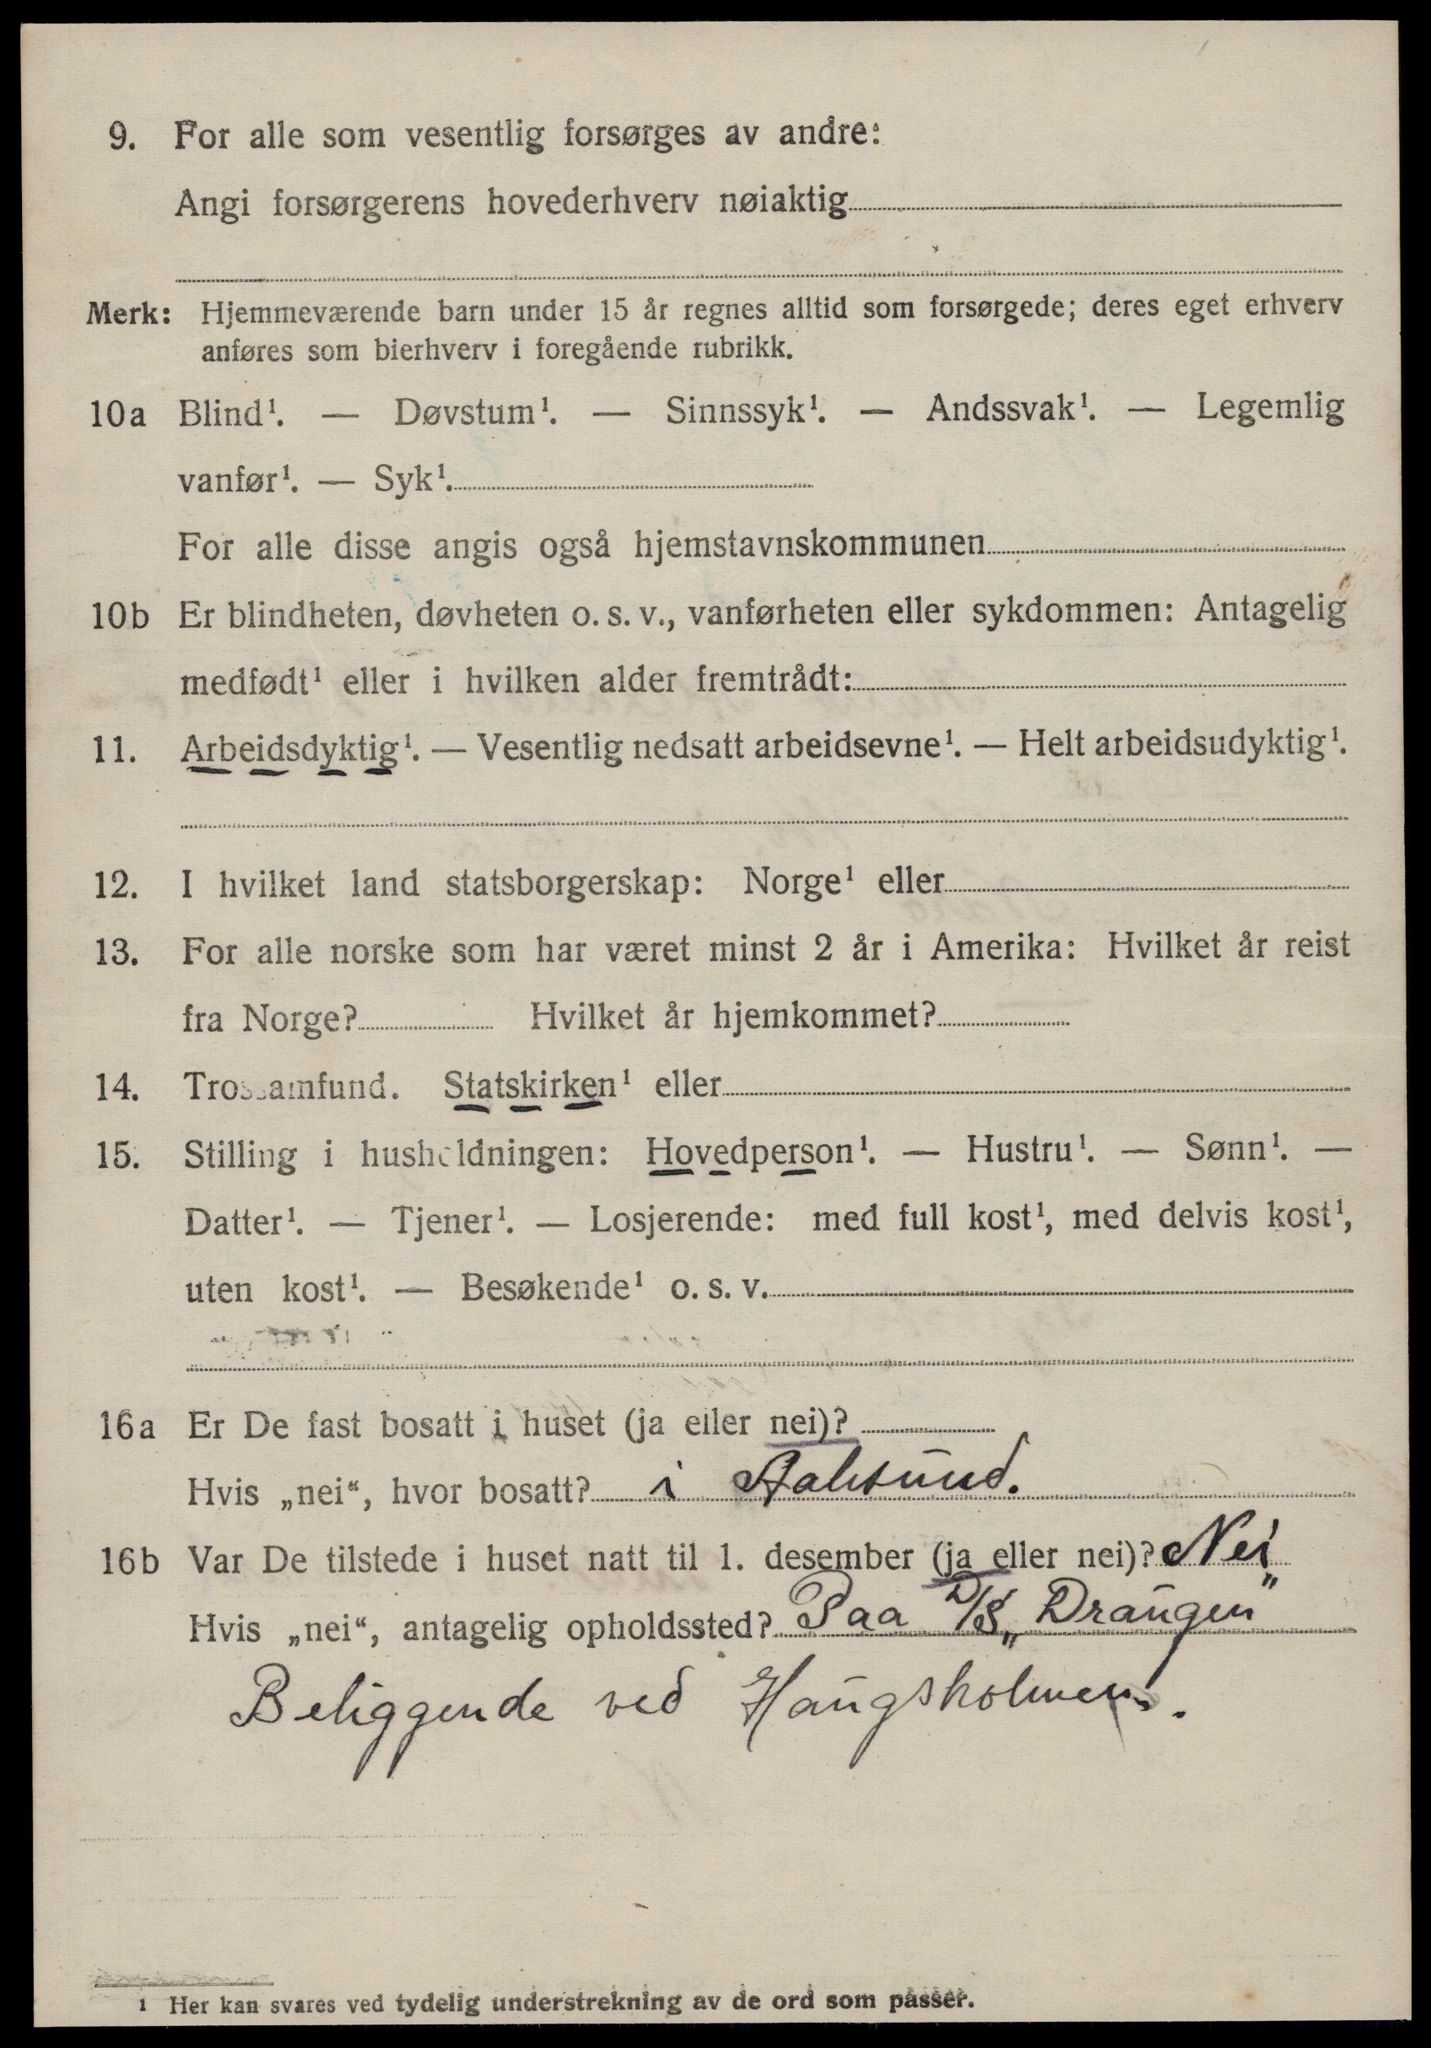 9. For alle som vesentlig forsørges av andre:
Angi forsørgerens hovederhverv nøiaktig
Merk: Hjemmeværende barn under 15 år regnes alltid som forsørgede; deres eget erhverv
anføres som bierhverv i foregående rubrikk.
10a Blind¹. — Døvstum¹. — Sinnssyk¹. — Andssvak¹. — Legemlig
vanfør¹. — Syk¹.
For alle disse angis også hjemstavnskommunen
10b Er blindheten, døvheten o. s. v., vanførheten eller sykdommen: Antagelig
medfødt¹ eller i hvilken alder fremtrådt:
11. Arbeidsdyktig¹. — Vesentlig nedsatt arbeidsevne¹. — Helt arbeidsudyktig¹.
12. I hvilket land statsborgerskap: Norge¹ eller
13. For alle norske som har været minst 2 år i Amerika: Hvilket år reist
fra Norge? Hvilket år hjemkommet?
14. Trossamfund. Statskirken¹ eller
15. Stilling i husholdningen: Hovedperson¹. — Hustru¹. — Sønn¹. —
Datter¹. — Tjener¹. — Losjerende: med full kost¹, med delvis kost¹,
uten kost¹. — Besøkende¹ o. s. v.
16a Er De fast bosatt i huset (ja eller nei)?
Hvis „nei“, hvor bosatt? i Aalesund.
16b Var De tilstede i huset natt til 1. desember (ja eller nei)? Nei
Hvis „nei“, antagelig opholdssted? Paa D/S „Draugen”
Beliggende ved Haugsholmen.
¹ Her kan svares ved tydelig understrekning av de ord som passer.